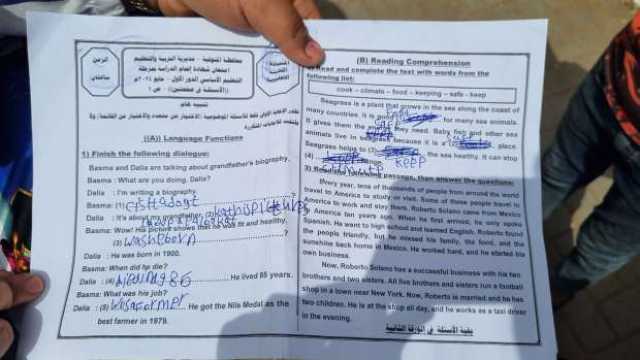 محافظة المنوفية - مديرية التربية والتعليم
امتحان شهادة إتمام الدراسة بمرحلة
التعليم الأساسي الدور الأول - مايو ٢٠٢٤م
((الأسئلة في صفحتين)) ص ١
الزمن
ساعتان
تنبيه هام
((A)) Language Functions
1) Finish the following dialogue:
Basma and Dalia are talking about grandfather's biography.
Basma : What are you doing, Dalia?
Dalia : I'm writing a biography.
Basma: (1)
Dalia : It's about my grandfather.
Basma: Wow! His picture shows that he was fit and healthy.
(3) washeborn ?
Dalia : He was born in 1900.
Basma: When did he die?
Dalia : (4) He lived 85 years.
Basma: What was his job?
Dalia : (5) He got the Nile Medal as the
best farmer in 1979.
(B) Reading Comprehension
2) Read and complete the text with words from the
following list:
cook – climate – food – keeping – safe - keep
Seagrass is a plant that grows in the sea along the coast of
many countries. It is good for many sea animals.
It gives them the they need. Baby fish and other sea
animals live in seagrass because it is a place.
Seagrass helps to (3) the sea healthy. It can stop
(4) keep
3) Read the following passage, then answer the questions:
Every year, tens of thousands of people from around the world
travel to America to study or visit. Some of these people travel to
America to work and stay there. Roberto Solano came from Mexico
to America ten years ago. When he first arrived, he only spoke
Spanish. He went to high school and learned English. Roberto found
the people friendly, but he missed his family, the food, and the
sunshine back home in Mexico. He worked hard, and he started his
own business.
Now, Roberto Solano has a successful business with his two
brothers and two sisters. All five brothers and sisters run a football
shop in a town near New York. Now, Roberto is married and he has
two children. He is at the shop all day, and he works as a taxi driver
in the evening.
بقية الأسئلة في الورقة الثانية